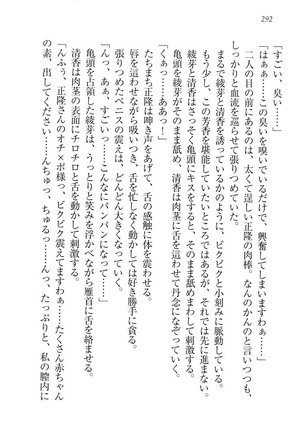 292
「すごい、臭い……」
「はぁぁ……この臭いを嗅いでいるだけで、興奮してしまいますわぁ……」
二人の目の前にあるのは、太くて逞しい正隆の肉棒。なんのかんの言いつつも、
しっかりと血流を巡らせて張りつめていた。
まるで綾芽と清香を誘っているかのように、ビクビクと小刻みに脈動している。
もう少し、この芳香を堪能していたいところではあるが、それでは先に進まない。
綾芽と清香はさっそく亀頭にキスをすると、そのまま舐めまわして刺激する。
亀頭を綾芽がそのまま舐め、清香は肉茎に舌を這わせて丹念になぞっていく。
「くぁっ……ああっ！」
たちまち正隆は呻き声をあげて、舌の感触に体を震わせる。
唇を這わせながら吸いつき、舌を忙しなく動かしては好き勝手に貪る。
張りつめたペニスの震えは、どんどん大きくなっていく。
「んっ、あぁ、すごいっ……こんなにパンパンになって……」
亀頭を占領した綾芽は、うっとりと笑みを浮かべながら雁首に舌を絡ませる。
清香は肉茎の表面にチロチロと舌を動かして刺激する。
「んふぅ、正隆さんのオチ×ポ様っ、ビクビク震えてますわぁ……たくさん赤ちゃん
の素、出してください……んちゅっ、ちゅるっ……んっ、たっぷりと、私の膣内に